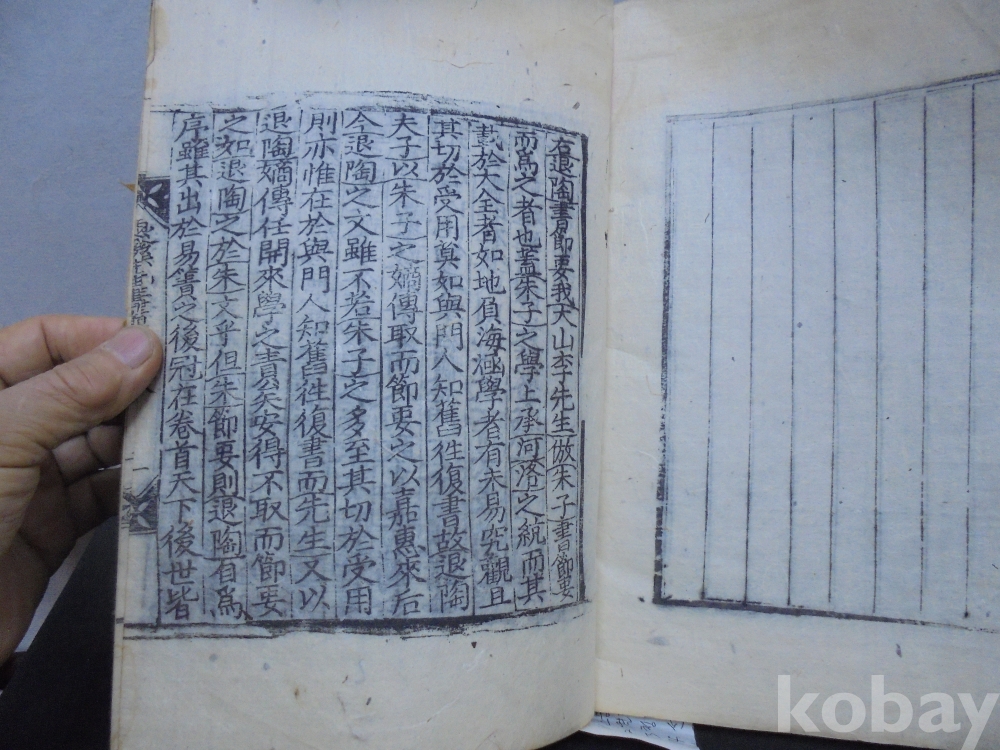 右退陶書節要我大山李先生倣朱子書節要
而爲之者也蓋朱子之學上承河洛之統而其
載於大全者如地負海涵學者有未易究觀且
其切於受用莫如與門人知舊往復書故退陶
夫子以朱子之嫡傳取而節要之以嘉惠來后
今退陶之文雖不若朱子之多至其切於受用
則亦惟在於與門人知舊往復書而先生又以
退陶嫡傳任開來學之責矣安得不取而節要
之如退陶之於朱文乎但朱節要則退陶自爲
序雖其出於易簀之後冠在卷首天下後世皆
kobay